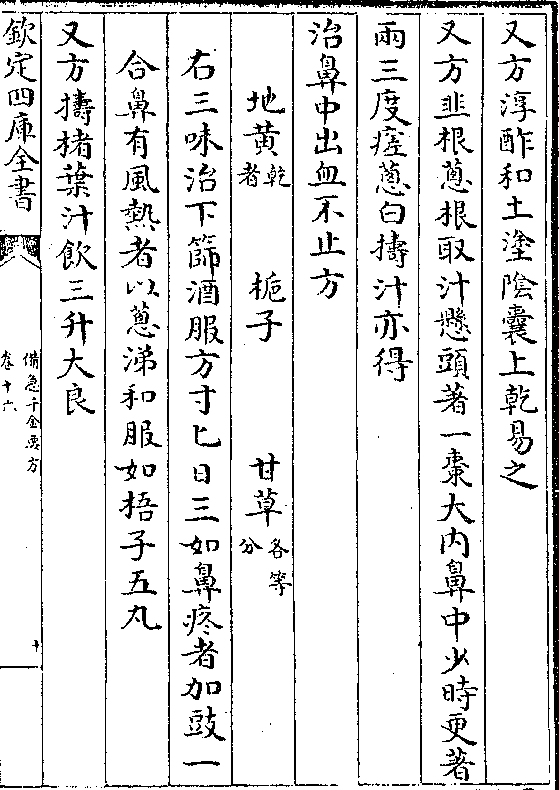 又方淳酢和土塗陰囊上乾易之
又方韭根蔥根取汁懸頭著一棗大内鼻中少時更著
兩三度瘥蔥白擣汁亦得
治鼻中出血不止方
地黄乾者 梔子 甘草各等分
右三味治下篩酒服方寸匕日三如鼻疼者加豉一
合鼻有風熱者以蔥涕和服如梧子五丸
又方擣楮葉汁飲三升大良
欽定四庫全書
備急千金要方
卷十六
十